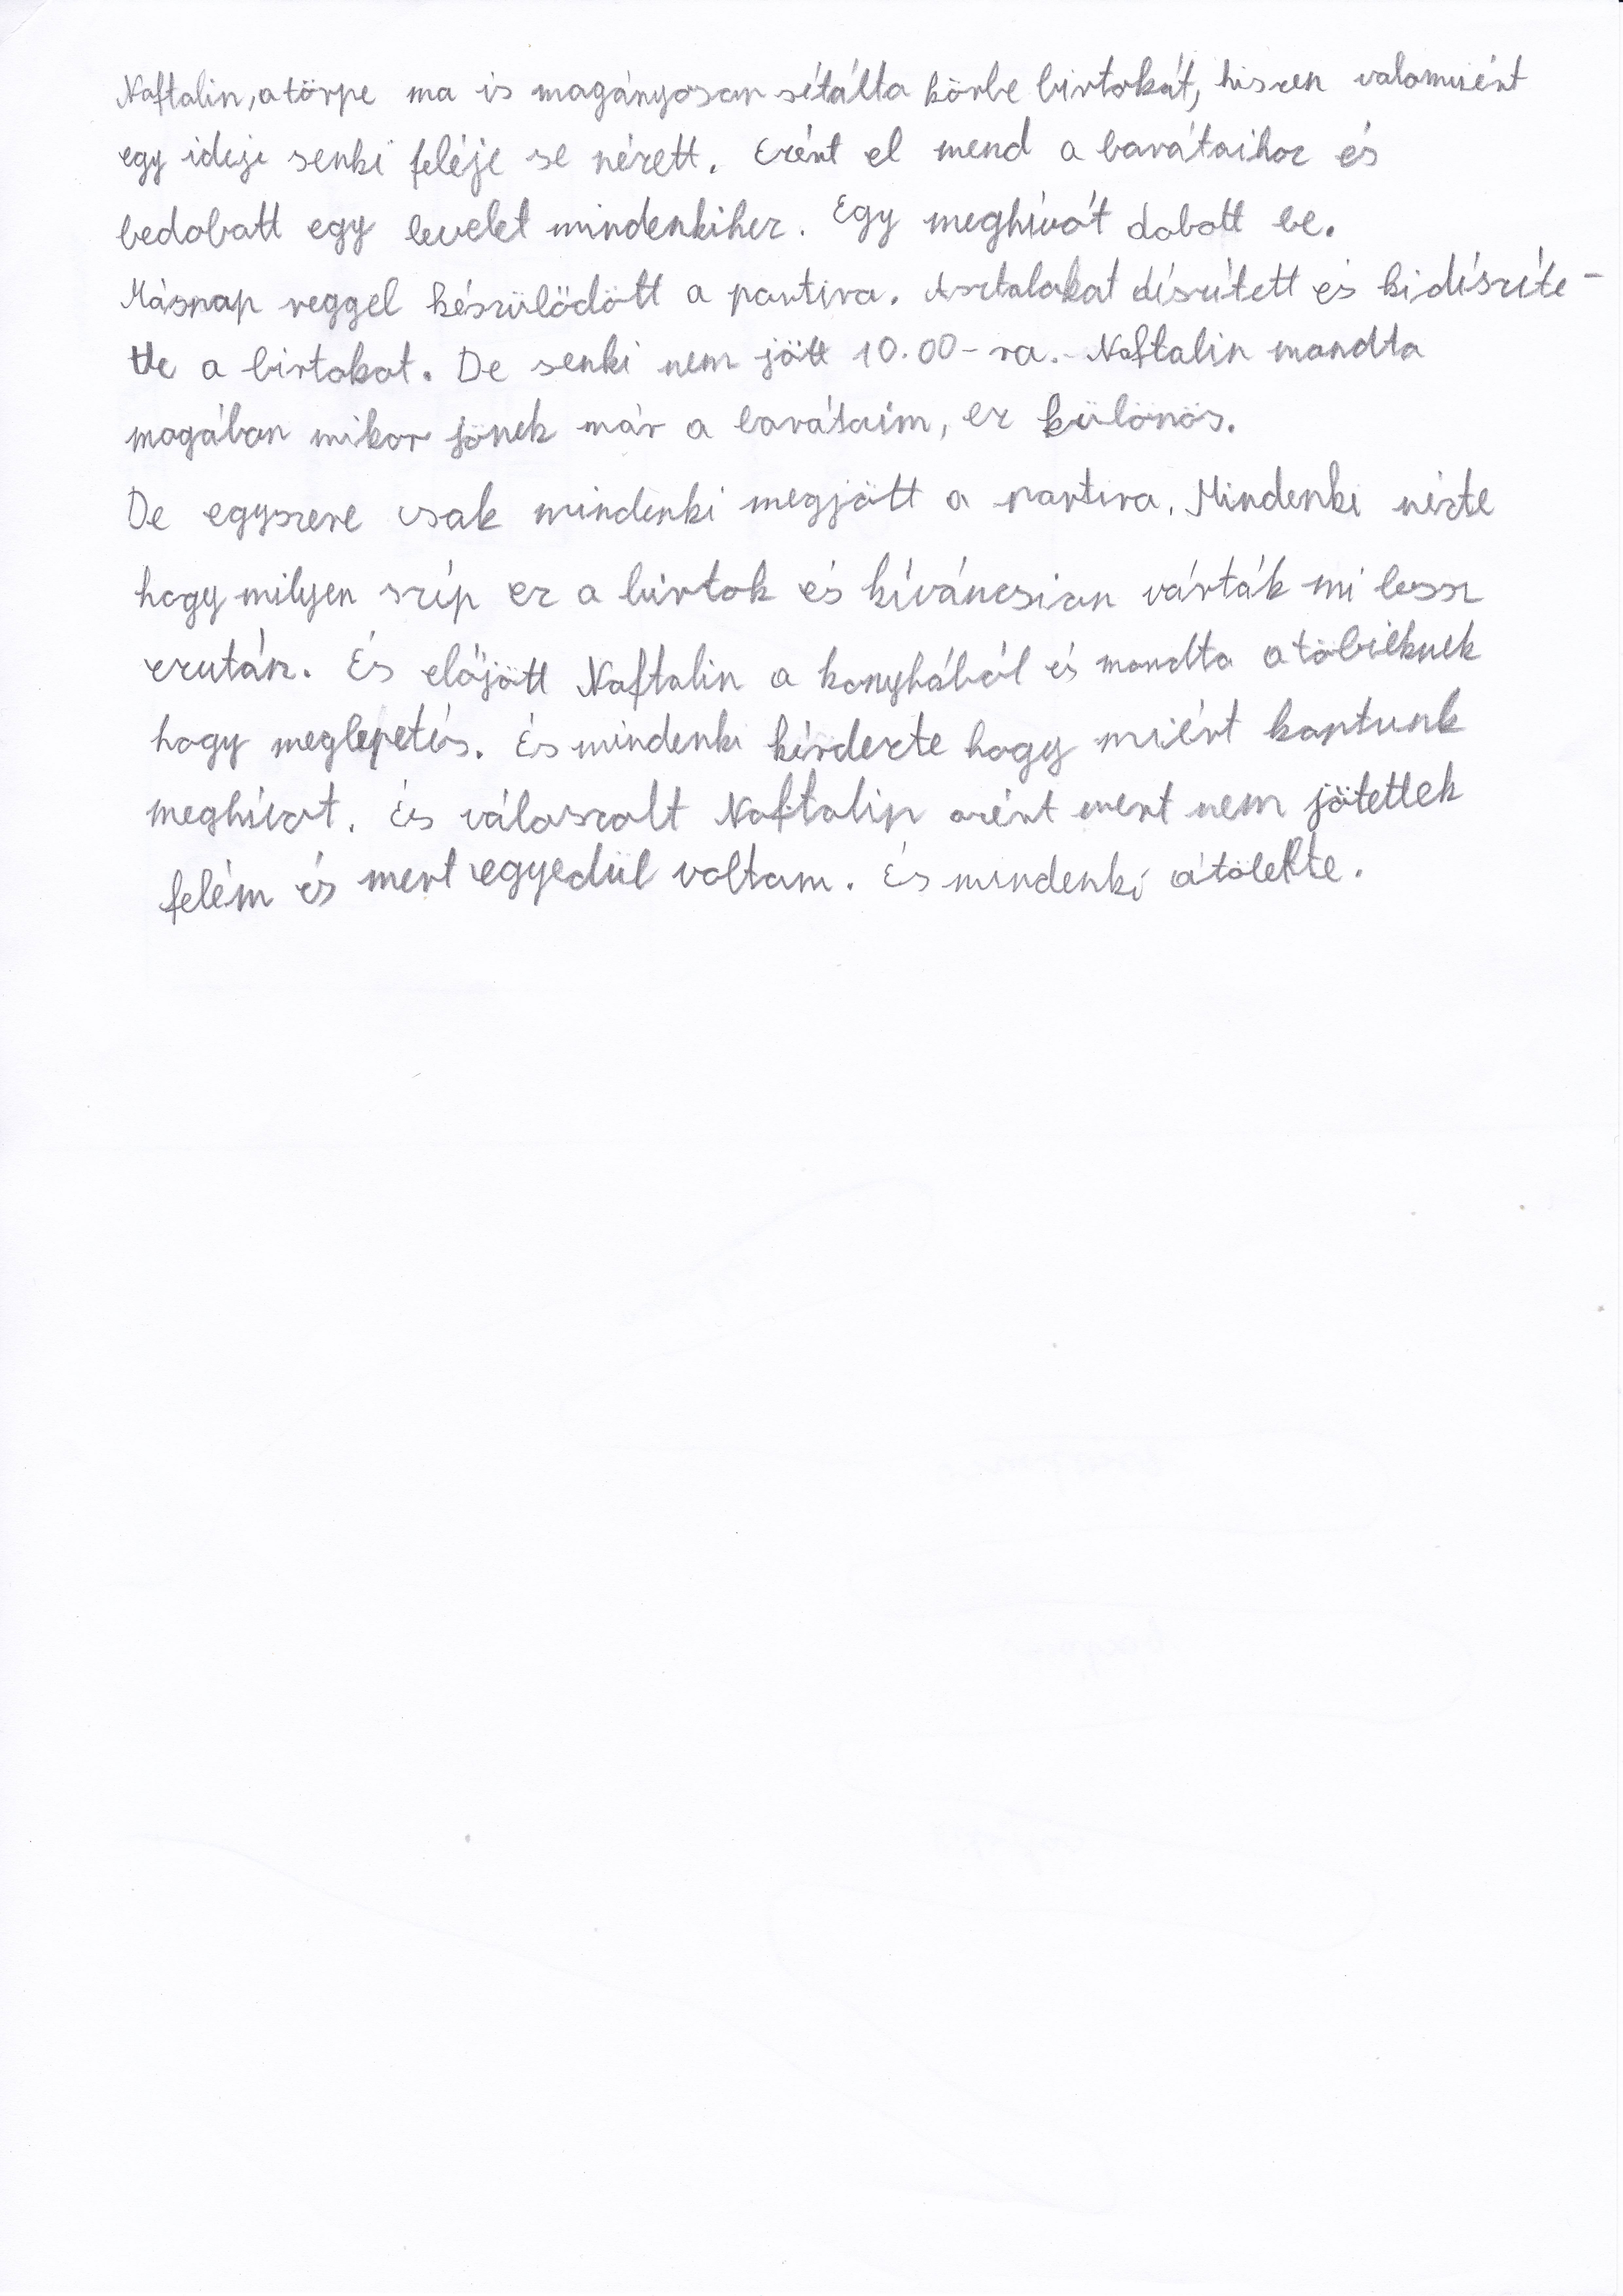 Naftalin, a törpe ma is magányosan sétálta körbe birtokát, hiszen valamiért
egy ideje senki feléje se nézett. Ezért el mend a barátaihoz és
bedobatt egy levelet mindenkihez. Egy meghívót dobott be.
Másnap reggel készülödött a partira. Asztalokat díszített és kidíszíte-
tte a birtokot. De senki nem jött 10.00-ra. Naftalin mondta
magában mikor jönek már a barátaim, ez különös.
De egyszere csak mindenki megjött a partira. Mindenki nézte
hogy milyen szép ez a birtok és kíváncsian várták mi lessz
ezután. És előjött Naftalin a konyhából és mondta a töbieknek
hogy meglepetés. És mindenki kérdezte hogy miért kaptunk
meghívót. És válaszolt Naftalin azért mert nem jötettek
felém és mert egyedül voltam. És mindenki átölelte.